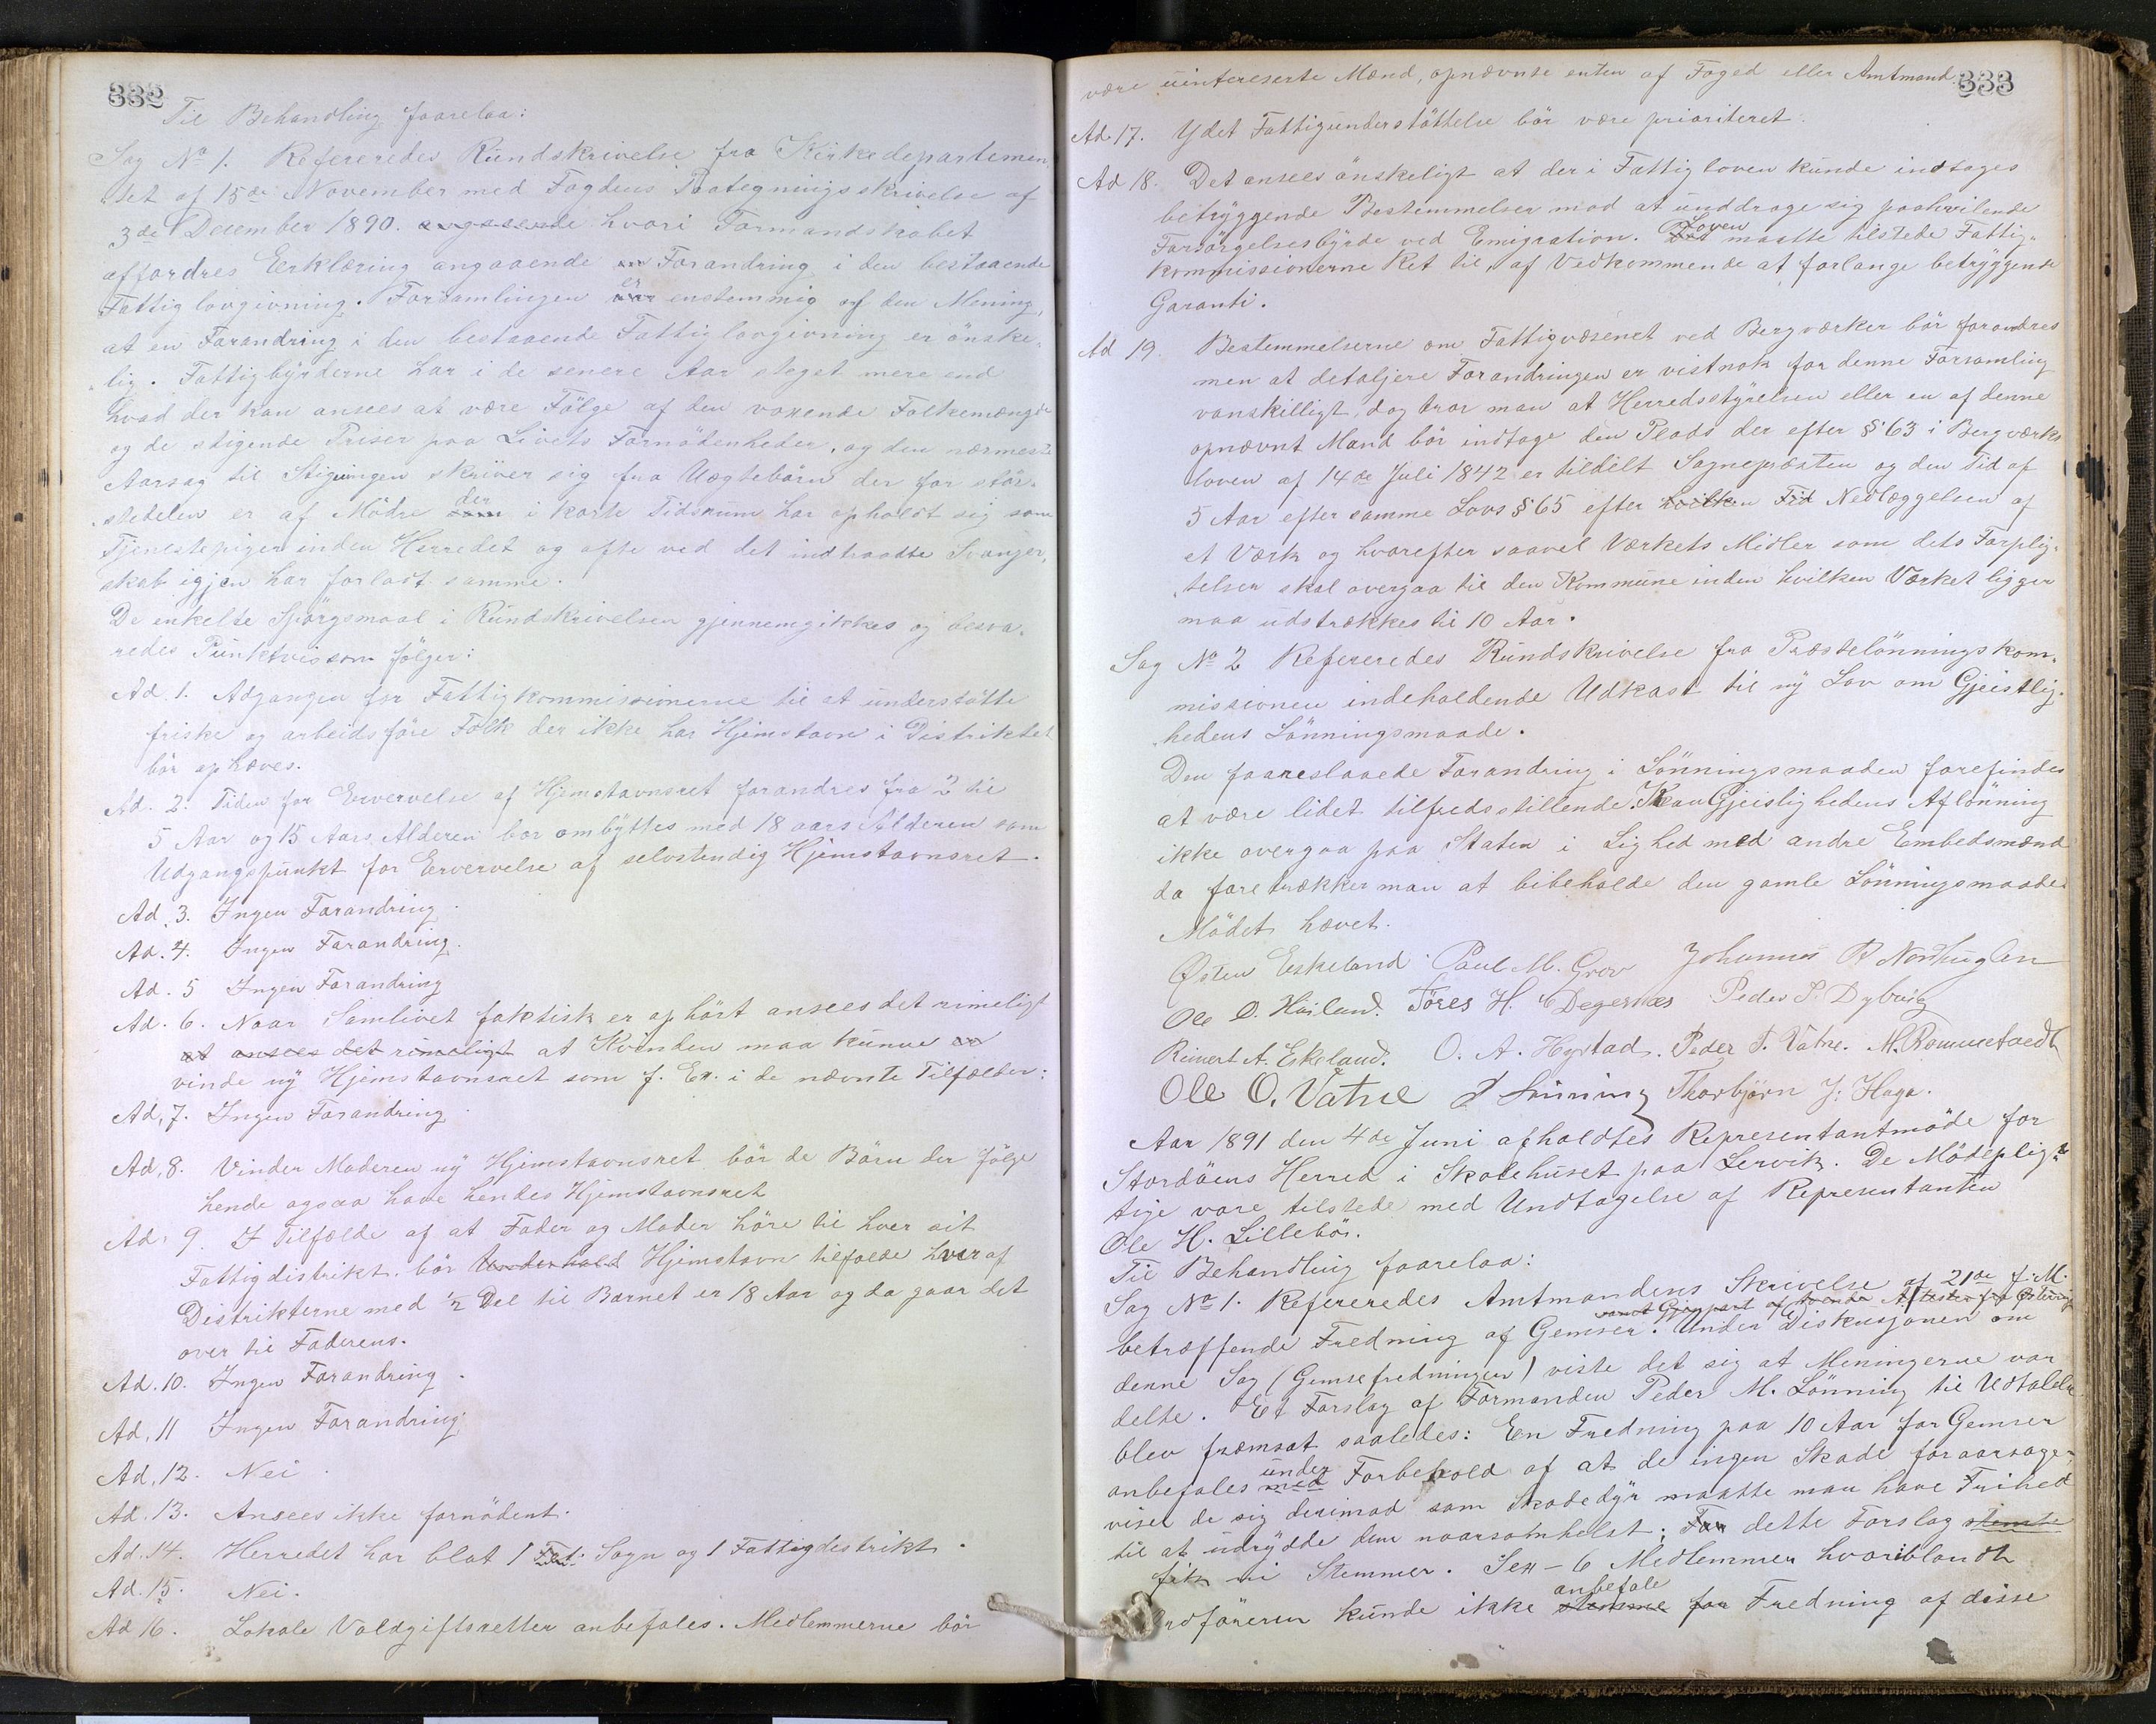 332
Til Behandling foorelaa:
Sag No 1. Refereredes Rundskrivelse fra Kirkedepartemen,
tet af 15de November med Fogdens Paategningsskrivelse af
3de December 1890. hvori Formandskabet
affordres Erklæring angaaende en Forandring i den bestaaende
Fattiglovgivning. Forsamlingen er enstemmig af den Mening,
at en Forandring i den bestaaende Fattiglovgivning er önske,
lig. Fattigbyrderne har i de senere Aar steget mere end
hvad der kan ansees at være Fölge af den voxende Folkemængde
og de stigende Priser paa Livets Fornödenheder, og den nærmeste
Aarsag til Stigningen skriver sig fra Uægtebörn der for stör,
stedelen er af Mödre der som i korte Tidsrum har opholdt sig som
Tjenestepiger inden Herredet og ofte ved det indtraadte Svanger,
skab igjen har forladt samme.
De enkelte Spörgsmaal i Rundskrivelsen gjennemgikkes og besva,
redes Punktvis som fölger:
Ad. 1. Adgangen for Fattigkommissionerne til at understötte
friske og arbeidsföre Folk der ikke har Hjemstavn i Distriktet
bör ophæves.
Ad. 2. Tiden for Ervervelse af Hjemstavnsret forandres fra 2 til
5 Aar og 15 Aars Alderen bör ombyttes med 18 aars Alderen som
Udgangspunkt for Ervervelse af selvstendig Hjemstavnsret.
Ad. 3. Ingen Forandring.
Ad. 4. Ingen Forandring.
Ad. 5 Ingen Forandring
Ad. 6. Naar Samlivet faktisk er ophört ansees det rimeligt
at ansees det rimeligt at Kvinden maa kunne
vinde ny Hjemstavnsret som f. Ex. i de nævnte Tilfælder:
Ad. 7. Ingen Forandring.
Ad. 8. Vinder Moderen ny Hjemstavnsret bör de Börn der fölge
hende ogsaa have hendes Hjemstavnsret
Ad. 9. I Tilfælde af at Fader og Moder höre til hver sit
Fattigdistrikt, bör Underhold Hjemstavn tilfalde hver af
Distrikterne med ½ Del til Barnet er 18 Aar og da gaar det
over til Faderens.
Ad. 10. Ingen Forandring.
Ad. 11 Ingen Forandring.
Ad. 12. Nei.
Ad. 13. Ansees ikke fornödent.
Ad. 14. Herredet har blot 1 Sogn og 1 Fattigdistrikt.
Ad. 15. Nei.
Ad 16. Lokale Voldgiftsretter anbefales. Medlemmerne bör
333
være uintereserte Mænd, opnævnte enten af Foged eller Amtmand.
Ad. 17. Ydet Fattigunderstöttelse bör være prioriteret.
Ad 18. Det ansees önskeligt at der i Fattigloven kunde indtages
betryggende Bestemmelser mod at unddrage sig paahvilende
Forsörgelsesbyrde ved Emigration. Loven maatte tilstede Fattig,
kommissionerne Ret til, af Vedkommende at forlange betryggende
Garanti.
Ad 19. Bestemmelserne om Fattigvæsenet ved Bergværker bör forandres
men at detaljere Forandringen er vistnok for denne Forsamling
vanskilligt, dog tror man at Herredsstyrelsen eller en af denne
opnævnt Mand bör indtage den Plads der efter § 63 i Bergværks
loven af 14de Juli 1842 er tildelt Sognepræsten og den Tid af
5 Aar efter samme Lovs § 65 efter hvilken Tid Nedlæggelsen af
et Værk og hvorefter saavel Værkets Midler som dets Forplig,
telser skal overgaa til den Kommune inden hvilken Værket ligger
maa udstrækkes til 10 Aar.
Sag No 2 Refereredes Rundskrivelse fra Præstelönningskom,
missionen indeholdende Udkast til ny Lov om Gjeistlig,
hedens Lönningsmaade.
Den foareslaaede Forandring i Lönningsmaaden forefindes
at være lidet tilfredsstillende. Kan Gjeislighedens Aflönning
ikke overgaa paa Staten i Lighed med andre Embedsmænd
da foretrækker man at bibeholde den gamle Lönningsmaade.
Mödet hævet.
Østen Eskeland Paul M. Grov Johannes B Nordhuglen
Ole O. Höiland. Töres H. Degernæs Peder P. Dybvig
Reinert A. Eskeland. O. A. Hystad. Peder T. Vatne. M. Rommetvedt
Ole O. Vatne P Lönning Thorbjörn J. Haga.
Aar 1891 den 4de Juni afholdtes Representantmöde for
Stordöens Herred i Skolehuset paa Lervik. De Mödeplig,
tige vare tilstede med Undtagelse af Representanten
Ole H. Lilleböe.
Til Behandling foorelaa:
Sag No 1. Refereredes Amtmandens Skrivelse af 21de f. M.
betræffende Fredning af Gemser. Under Diskusjonen om
denne Sag (Gemsefredningen) viste det sig at Meningerne var
delte. Et Forslag af Formanden Peder M. Lönning til Udtalelse
blev fræmsat saaledes: En Fredning paa 10 Aar for Gemser
anbefales under med Forbehold af at de ingen Skade foraarsage,
viser de sig derimod som Skadedyr maatte man have Frihed
til at udrydde dem naarsomhelst; For dette Forslag stemte
fik ni Stemmer. Sex - 6 Medlemmer hvoriblandt
Ordföreren kunde ikke anbefale stemme for Fredning af disse